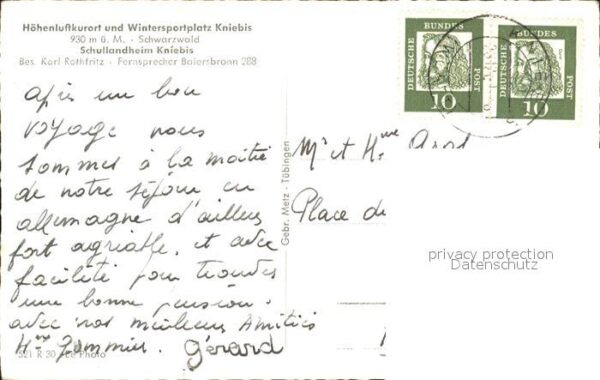 Höhenluftkurort und Wintersportplatz Kniebis
930 m ü. M. - Schwarzwald
Schullandheim Kniebis
Bes. Karl Rothfritz - Fernsprecher Baiersbronn 288
DEUTSCHE BUNDES POST
10
DEUTSCHE BUNDES POST
10
Après un bon
voyage nous
sommes à la moitié
de notre séjour en
allemagne d'ailleurs
fort agréable. et avec
facilité pour trouver
une bonne pension.
avec nos meilleurs Amitiés
Gérard
Gebr. Metz - Tübingen
Mr et Mme
Place de
privacy protection
Datenschutz
521 R 30 Photo